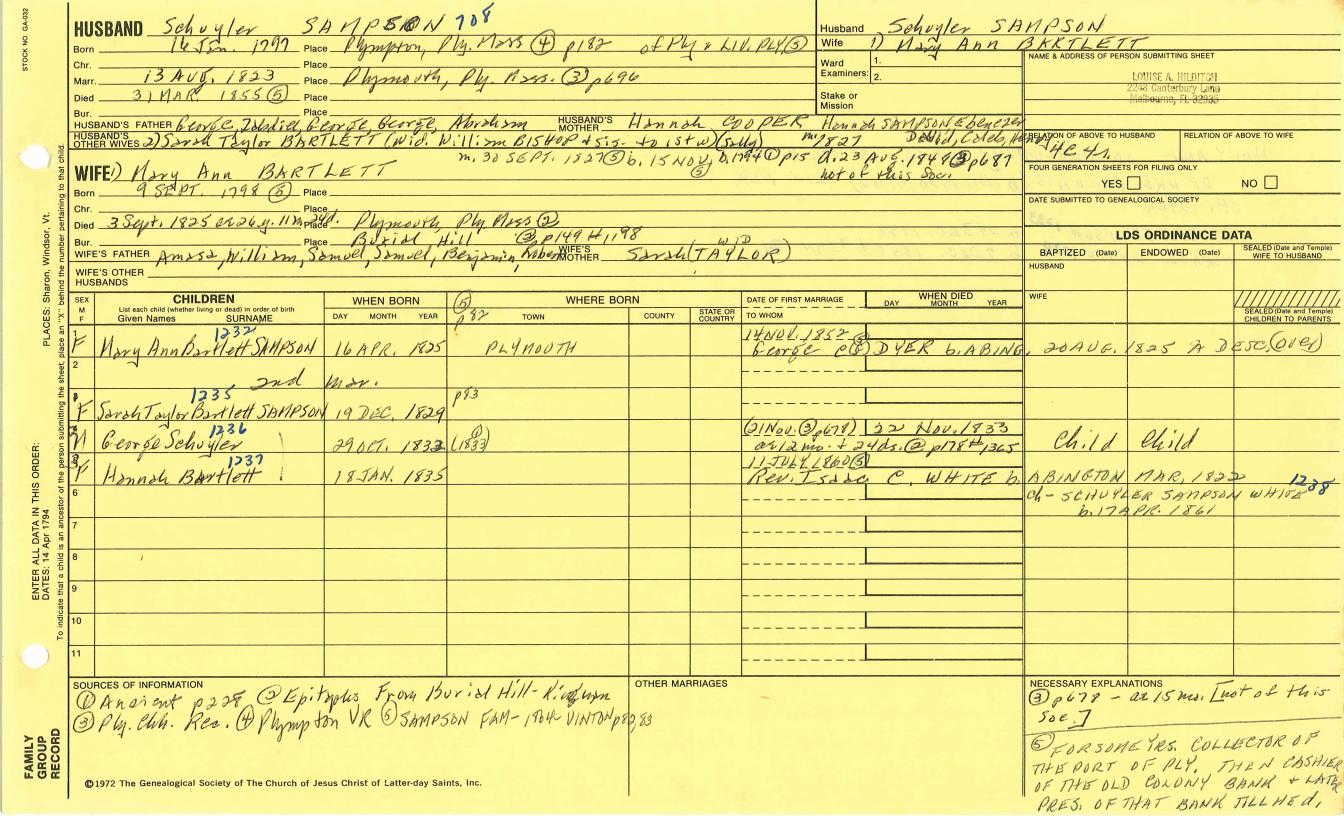 STOCK NO. GA-032
HUSBAND Schuyler SAMPSON 708
Born 16 Jan. 1797 Place Plympton, Ply. Mass ④ p182 of Ply & LIV. PLY. ⑤
Chr. Place
Marr. 13 AUG. 1823 Place Plymouth, Ply. Mass. ③ p696
Died 31 MAR. 1855 ⑤ Place
Bur. Place
HUSBAND'S FATHER George, Zabdiel, George, George, Abraham HUSBAND'S MOTHER Hannah COOPER Hannah SAMPSON Ebenezer
HUSBAND'S OTHER WIVES 2) Sarah Taylor BARTLETT (Wid. William BISHOP & sis. to 1st w) (Sally) m. 1827 David, Caleb, Henry
m. 30 SEPT. 1827 ③ b. 15 NOV. 1794 ① p15 d. 23 AUG. 1848 ③ p687
⑤ not of this Soc.
WIFE 1) Mary Ann BARTLETT
Born 9 SEPT. 1798 ⑤ Place
Chr. Place
Died 3 Sept. 1825 ae 26 y. 11 m. 24 d. Place Plymouth, Ply Mass ②
Bur. Place Burial Hill ② p149 # 1198
WIFE'S FATHER Amasa, William, Samuel, Samuel, Benjamin, Robert WIFE'S MOTHER Sarah (TAYLOR) WID
WIFE'S OTHER HUSBANDS
Husband Schuyler SAMPSON
Wife 1) Mary Ann BARTLETT
Ward Examiners: 1. 2.
Stake or Mission
NAME & ADDRESS OF PERSON SUBMITTING SHEET
LOUISE A. HILDITCH
2248 Canterbury Lane
Melbourne, FL 32935
RELATION OF ABOVE TO HUSBAND RELATION OF ABOVE TO WIFE
4C 4r.
FOUR GENERATION SHEETS FOR FILING ONLY
YES NO
DATE SUBMITTED TO GENEALOGICAL SOCIETY
LDS ORDINANCE DATA
BAPTIZED (Date) ENDOWED (Date) SEALED (Date and Temple) WIFE TO HUSBAND
HUSBAND
WIFE
SEALED (Date and Temple) CHILDREN TO PARENTS
SEX M F CHILDREN List each child (whether living or dead) in order of birth Given Names SURNAME
WHEN BORN DAY MONTH YEAR
⑤ p82 WHERE BORN TOWN COUNTY STATE OR COUNTRY
DATE OF FIRST MARRIAGE TO WHOM
WHEN DIED DAY MONTH YEAR
1 F 1232 Mary Ann Bartlett SAMPSON 16 APR. 1825 PLYMOUTH 14 NOV. 1852 ⑤
George C ⑤ DYER b. ABING. 20 AUG. 1825 A DESC. (over)
2 2nd mar.
F 1235 Sarah Taylor Bartlett SAMPSON 19 DEC. 1829 p83
M 1236 George Schuyler 29 OCT. 1832 (1833) (21 Nov. ③ p678) 22 Nov. 1833
ae 12 mo. + 24 ds. ② p178 # 1365 Child Child
F 1237 Hannah Bartlett 18 JAN. 1835 11 JULY 1860 ⑤
Rev. Isaac C. WHITE b. ABINGTON MAR. 1822
6 ch - SCHUYLER SAMPSON WHITE 1238
b. 17 APR. 1861
7
8
9
10
11
SOURCES OF INFORMATION
① Ancient p228 ② Epitaphs From Burial Hill - Kingman
③ Ply. Chh. Rec. ④ Plympton VR ⑤ SAMPSON FAM - 1864 - VINTON p82,83
OTHER MARRIAGES
NECESSARY EXPLANATIONS
③ p678 - ae 15 mo. [not of this
Soc.]
⑤ FOR SOME YRS. COLLECTOR OF
THE PORT OF PLY. THEN CASHIER
OF THE OLD COLONY BANK & LATER
PRES. OF THAT BANK TILL HE d.
©1972 The Genealogical Society of The Church of Jesus Christ of Latter-day Saints, Inc.
FAMILY GROUP RECORD
ENTER ALL DATA IN THIS ORDER:
DATES: 14 Apr 1794
PLACES: Sharon, Windsor, Vt.
To indicate that a child is an ancestor of the person submitting the sheet, place an "X" behind the number pertaining to that child.